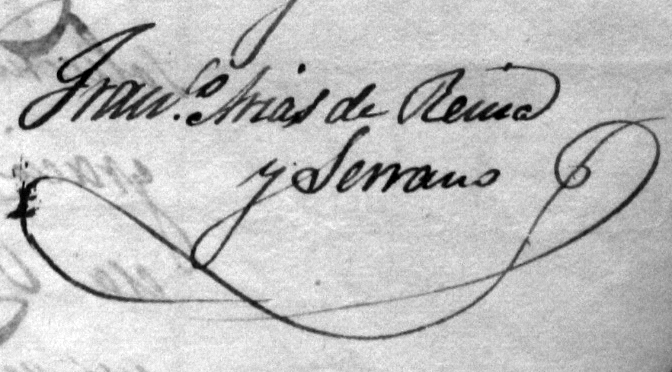 Fran.co Arias de Reina
y Serrano